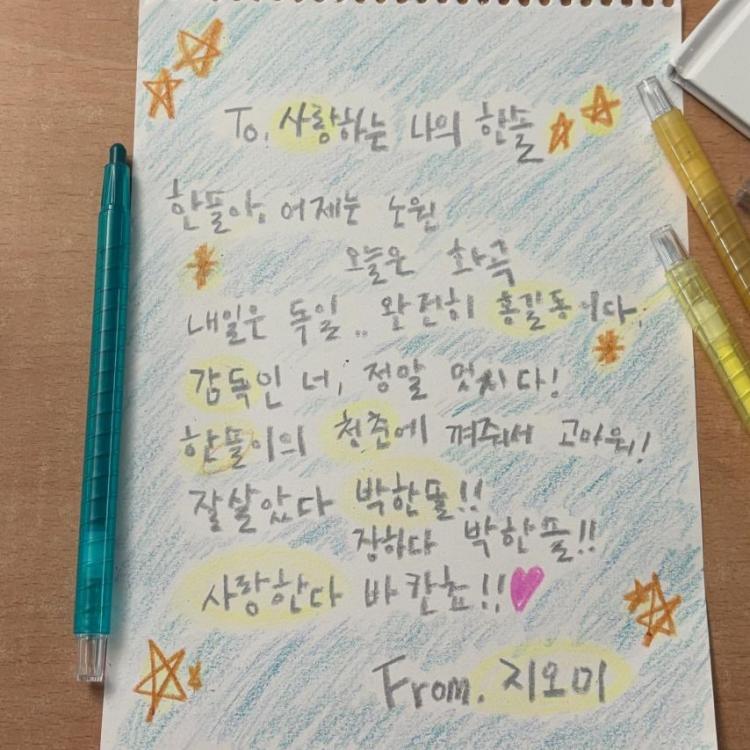 To. 사랑하는 나의 한뜰
한뜰아, 어제는 노원
오늘은 화곡
내일은 독일.. 완전히 홍길동이다.
감독인 너, 정말 멋지다!
한뜰이의 청춘에 껴줘서 고마워!
잘살았다 박한뜰!!
장하다 박한뜰!!
사랑한다 바칸뜰!!
From. 지오미